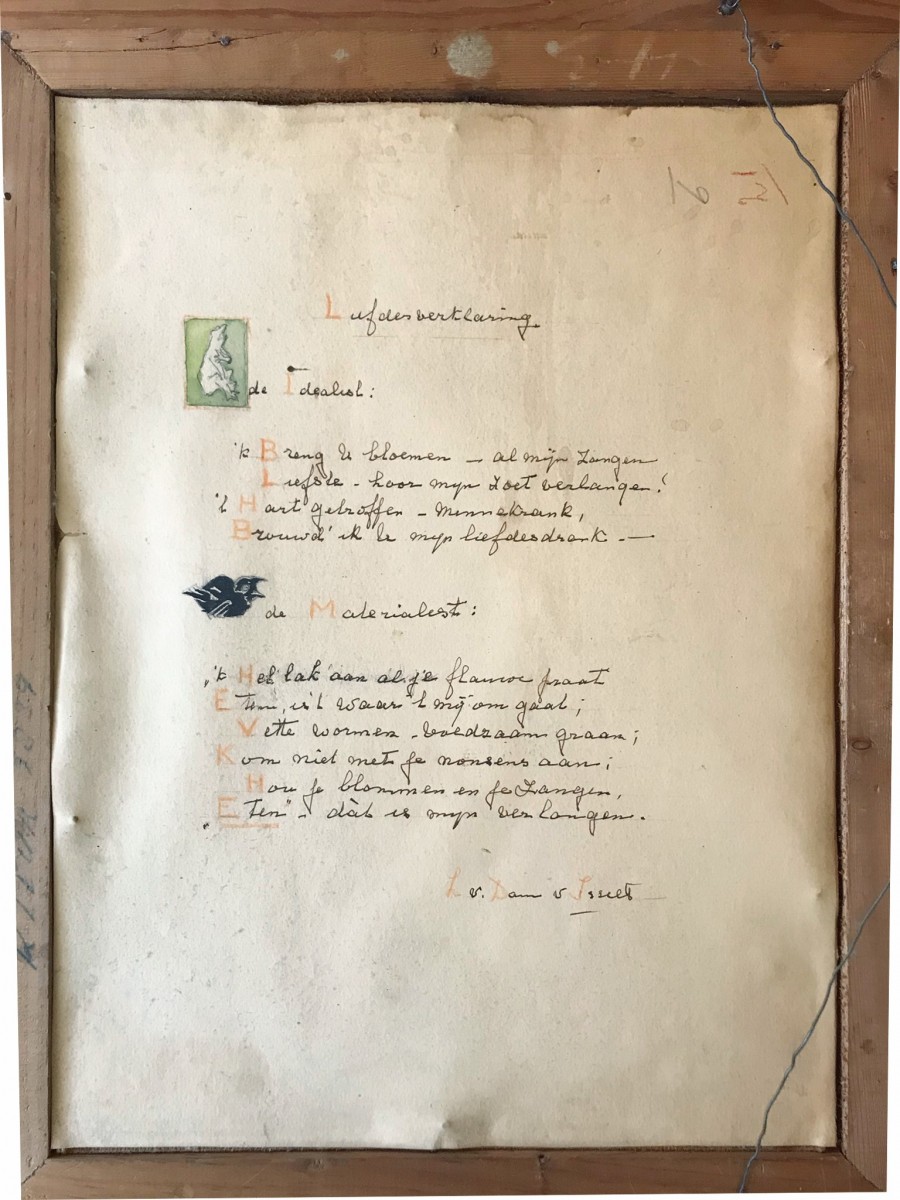 Liefdesverklaring.
de Idealist:
'k Breng U bloemen – al mijn Zangen
Liefste – hoor mijn Zoet verlangen!
't Hart getroffen – minnekrank,
Brouwd' ik U mijn liefdesdrank. –
de Materialist:
„'k Heb lak aan al je flauwe praat
Eten, is 't waar 't mij om gaat;
Vette wormen – voedzaam graan;
Kom niet met je nonsens aan;
Hou je blommen en je Zangen,
„Eten" – dàt is mijn verlangen.
L v. Dam v Isselt